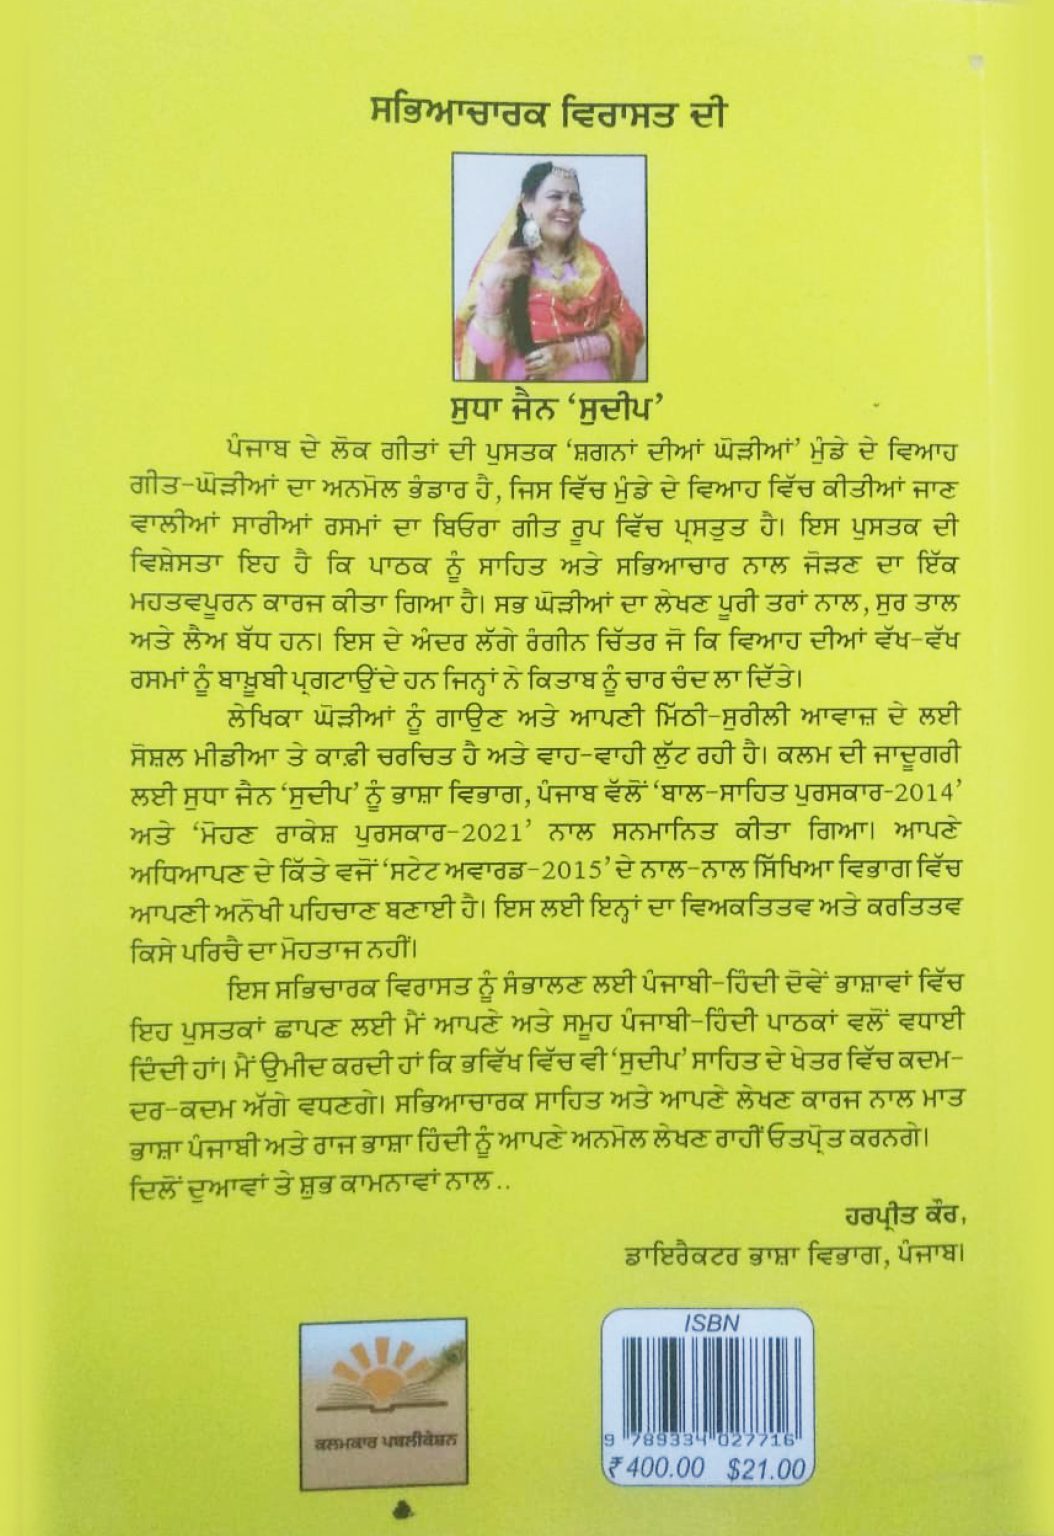 ਸਭਿਆਚਾਰਕ ਵਿਰਾਸਤ ਦੀ
ਸੁਧਾ ਜੈਨ ‘ਸੁਦੀਪ’
ਪੰਜਾਬ ਦੇ ਲੋਕ ਗੀਤਾਂ ਦੀ ਪੁਸਤਕ ‘ਸ਼ਗਨਾਂ ਦੀਆਂ ਘੋੜੀਆਂ’ ਮੁੰਡੇ ਦੇ ਵਿਆਹ
ਗੀਤ-ਘੋੜੀਆਂ ਦਾ ਅਨਮੋਲ ਭੰਡਾਰ ਹੈ, ਜਿਸ ਵਿੱਚ ਮੁੰਡੇ ਦੇ ਵਿਆਹ ਵਿੱਚ ਕੀਤੀਆਂ ਜਾਣ
ਵਾਲੀਆਂ ਸਾਰੀਆਂ ਰਸਮਾਂ ਦਾ ਬਿਓਰਾ ਗੀਤ ਰੂਪ ਵਿੱਚ ਪ੍ਰਸਤੁਤ ਹੈ। ਇਸ ਪੁਸਤਕ ਦੀ
ਵਿਸ਼ੇਸਤਾ ਇਹ ਹੈ ਕਿ ਪਾਠਕ ਨੂੰ ਸਾਹਿਤ ਅਤੇ ਸਭਿਆਚਾਰ ਨਾਲ ਜੋੜਣ ਦਾ ਇੱਕ
ਮਹਤਵਪੂਰਨ ਕਾਰਜ ਕੀਤਾ ਗਿਆ ਹੈ। ਸਭ ਘੋੜੀਆਂ ਦਾ ਲੇਖਣ ਪੂਰੀ ਤਰਾਂ ਨਾਲ, ਸੁਰ ਤਾਲ
ਅਤੇ ਲੈਅ ਬੱਧ ਹਨ। ਇਸ ਦੇ ਅੰਦਰ ਲੱਗੇ ਰੰਗੀਨ ਚਿੱਤਰ ਜੋ ਕਿ ਵਿਆਹ ਦੀਆਂ ਵੱਖ-ਵੱਖ
ਰਸਮਾਂ ਨੂੰ ਬਾਖ਼ੂਬੀ ਪ੍ਰਗਟਾਉਂਦੇ ਹਨ ਜਿਨ੍ਹਾਂ ਨੇ ਕਿਤਾਬ ਨੂੰ ਚਾਰ ਚੰਦ ਲਾ ਦਿੱਤੇ।
ਲੇਖਿਕਾ ਘੋੜੀਆਂ ਨੂੰ ਗਾਉਣ ਅਤੇ ਆਪਣੀ ਮਿੱਠੀ-ਸੁਰੀਲੀ ਆਵਾਜ਼ ਦੇ ਲਈ
ਸੋਸ਼ਲ ਮੀਡੀਆ ਤੇ ਕਾਫ਼ੀ ਚਰਚਿਤ ਹੈ ਅਤੇ ਵਾਹ-ਵਾਹੀ ਲੁੱਟ ਰਹੀ ਹੈ। ਕਲਮ ਦੀ ਜਾਦੂਗਰੀ
ਲਈ ਸੁਧਾ ਜੈਨ ‘ਸੁਦੀਪ’ ਨੂੰ ਭਾਸ਼ਾ ਵਿਭਾਗ, ਪੰਜਾਬ ਵੱਲੋਂ ‘ਬਾਲ-ਸਾਹਿਤ ਪੁਰਸਕਾਰ-2014’
ਅਤੇ ‘ਮੋਹਣ ਰਾਕੇਸ਼ ਪੁਰਸਕਾਰ-2021’ ਨਾਲ ਸਨਮਾਨਿਤ ਕੀਤਾ ਗਿਆ। ਆਪਣੇ
ਅਧਿਆਪਣ ਦੇ ਕਿੱਤੇ ਵਜੋਂ ‘ਸਟੇਟ ਅਵਾਰਡ-2015’ ਦੇ ਨਾਲ-ਨਾਲ ਸਿੱਖਿਆ ਵਿਭਾਗ ਵਿੱਚ
ਆਪਣੀ ਅਨੋਖੀ ਪਹਿਚਾਣ ਬਣਾਈ ਹੈ। ਇਸ ਲਈ ਇਨ੍ਹਾਂ ਦਾ ਵਿਅਕਤਿਤਵ ਅਤੇ ਕਰਤਿਤਵ
ਕਿਸੇ ਪਰਿਚੈ ਦਾ ਮੋਹਤਾਜ ਨਹੀਂ।
ਇਸ ਸਭਿਚਾਰਕ ਵਿਰਾਸਤ ਨੂੰ ਸੰਭਾਲਣ ਲਈ ਪੰਜਾਬੀ-ਹਿੰਦੀ ਦੋਵੇਂ ਭਾਸ਼ਾਵਾਂ ਵਿੱਚ
ਇਹ ਪੁਸਤਕਾਂ ਛਾਪਣ ਲਈ ਮੈਂ ਆਪਣੇ ਅਤੇ ਸਮੂਹ ਪੰਜਾਬੀ-ਹਿੰਦੀ ਪਾਠਕਾਂ ਵਲੋਂ ਵਧਾਈ
ਦਿੰਦੀ ਹਾਂ। ਮੈਂ ਉਮੀਦ ਕਰਦੀ ਹਾਂ ਕਿ ਭਵਿੱਖ ਵਿੱਚ ਵੀ ‘ਸੁਦੀਪ’ ਸਾਹਿਤ ਦੇ ਖੇਤਰ ਵਿੱਚ ਕਦਮ-
ਦਰ-ਕਦਮ ਅੱਗੇ ਵਧਣਗੇ। ਸਭਿਆਚਾਰਕ ਸਾਹਿਤ ਅਤੇ ਆਪਣੇ ਲੇਖਣ ਕਾਰਜ ਨਾਲ ਮਾਤ
ਭਾਸ਼ਾ ਪੰਜਾਬੀ ਅਤੇ ਰਾਜ ਭਾਸ਼ਾ ਹਿੰਦੀ ਨੂੰ ਆਪਣੇ ਅਨਮੋਲ ਲੇਖਣ ਰਾਹੀਂ ਓਤਪ੍ਰੋਤ ਕਰਨਗੇ।
ਦਿਲੋਂ ਦੁਆਵਾਂ ਤੇ ਸ਼ੁਭ ਕਾਮਨਾਵਾਂ ਨਾਲ..
ਹਰਪ੍ਰੀਤ ਕੌਰ,
ਡਾਇਰੈਕਟਰ ਭਾਸ਼ਾ ਵਿਭਾਗ, ਪੰਜਾਬ।
ਕਲਮਕਾਰ ਪਬਲੀਕੇਸ਼ਨ
ISBN
9 789334 027716
₹400.00 $21.00